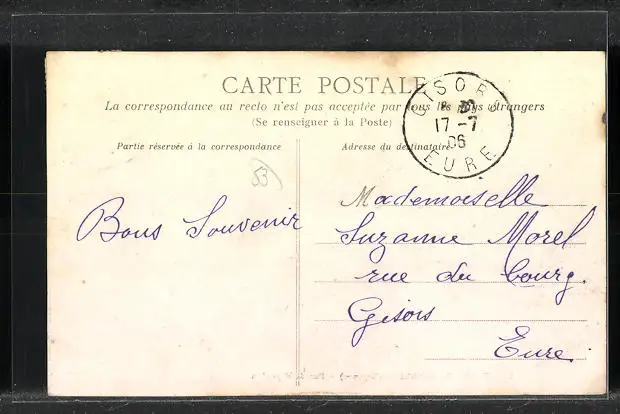 CARTE POSTALE
La correspondance au recto n'est pas acceptée par tous les pays étrangers
(Se renseigner à la Poste)
Partie réservée à la correspondance
Adresse du destinataire
GISORS
17-7
06
EURE
53
Bons Souvenir
Mademoiselle
Suzanne Morel
rue du bourg.
Gisors
Eure.